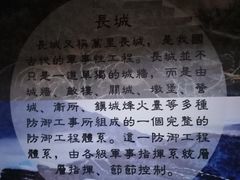 長城
長城又称萬里長城，是我國
古代的軍事性工程。長城並不
只是一道單獨的城墻，而是由
城墻、敵樓、關城、墩堡、營
城、衛所、鎮城烽火臺等多種
防御工事所組成的一個完整的
防御工程體系。這一防御工程
體系，由各級軍事指揮系統層
層指揮、節節控制。